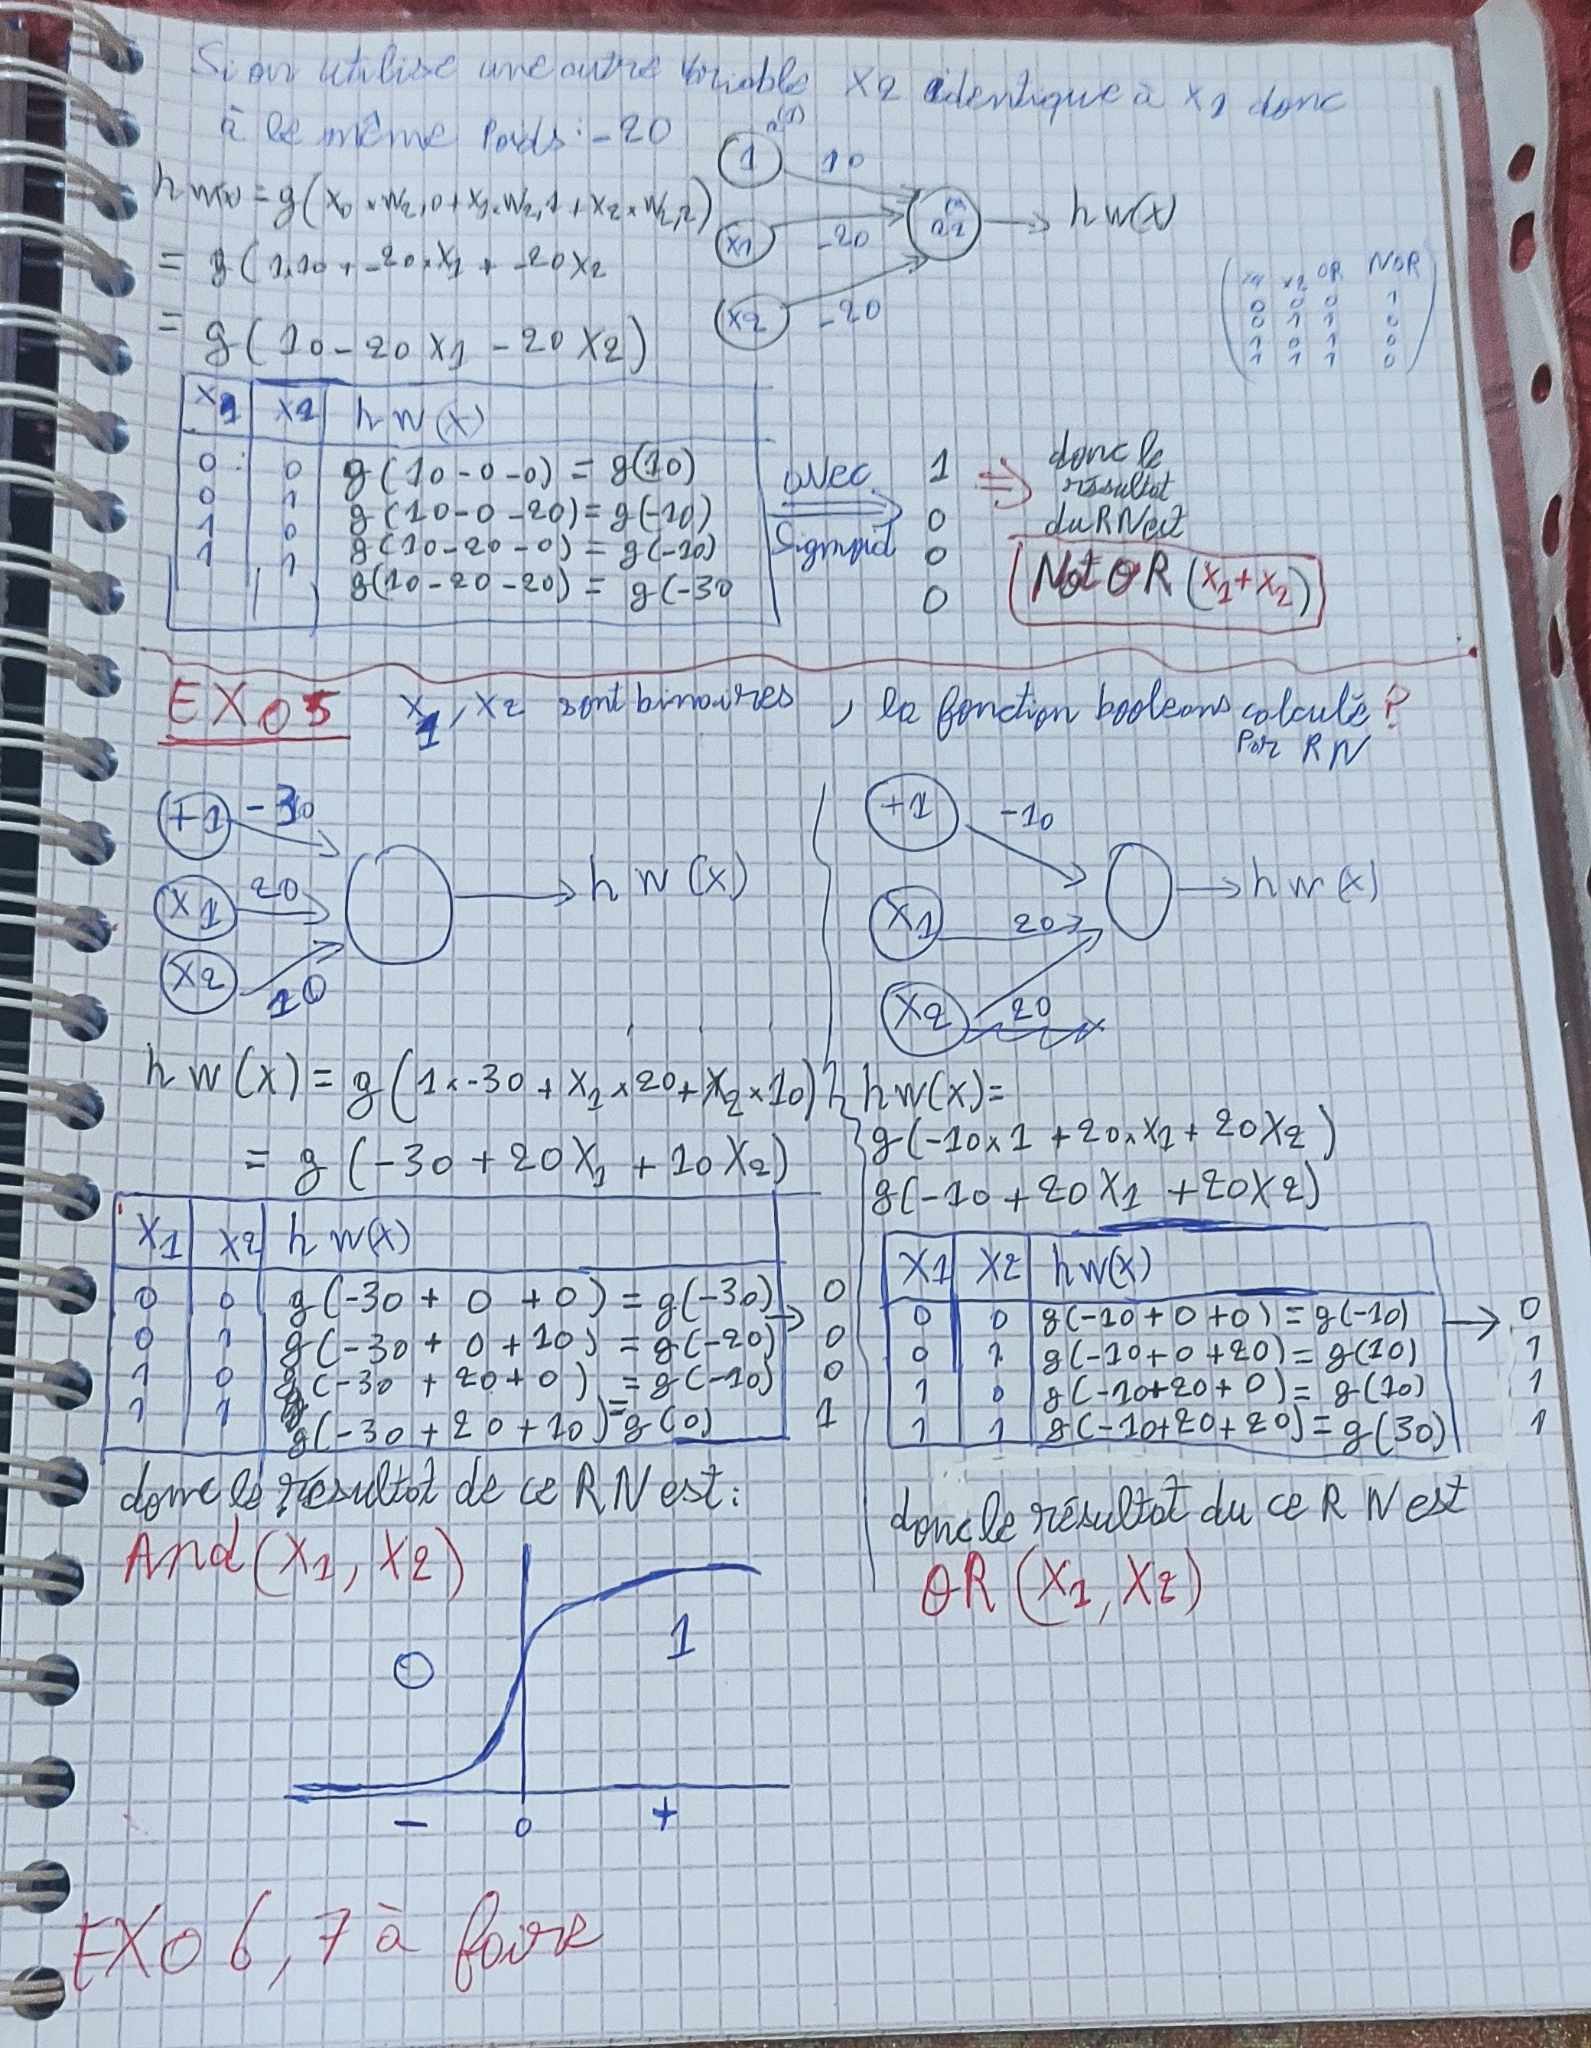 Si on utilise une autre variable x2 identique à x1 donc
à le même Poids : -20
hw(x) = g(x0 × w2,0 + x1 × w2,1 + x2 × w2,2)
= g(1×10 + -20×x1 + -20x2
= g(10 - 20x1 - 20x2)
1 10
x1 -20
x2 -20
hw(x)
x1 x2 OR NOR
0 0 0 1
0 1 1 0
1 0 1 0
1 1 1 0
x1 x2 hw(x)
0 0 g(10-0-0) = g(10)
0 1 g(10-0-20) = g(-10)
1 0 g(10-20-0) = g(-10)
1 1 g(10-20-20) = g(-30
avec
Sigmoid
1
0
0
0
donc le
résultat
du RN est
Not OR (x1+x2)
EX05 x1, x2 sont binaires, la fonction booleans calculé ?
Par RN
+1 -30
x1 20
x2 10
hw(x)
hw(x) = g(1×-30 + x1×20 + x2×10)
= g(-30 + 20x1 + 10x2)
x1 x2 hw(x)
0 0 g(-30 + 0 + 0) = g(-30) → 0
0 1 g(-30 + 0 + 10) = g(-20) 0
1 0 g(-30 + 20 + 0) = g(-10) 0
1 1 g(-30 + 20 + 10) = g(0) 1
donc le résultat de ce RN est :
And(x1, x2)
0
1
- 0 +
+1 -10
x1 20
x2 20
hw(x)
hw(x) =
g(-10×1 + 20×x1 + 20x2)
g(-10 + 20x1 + 20x2)
x1 x2 hw(x)
0 0 g(-10+0+0) = g(-10) → 0
0 1 g(-10+0+20) = g(10) 1
1 0 g(-10+20+0) = g(10) 1
1 1 g(-10+20+20) = g(30) 1
donc le résultat du ce RN est
OR(x1, x2)
EXO 6, 7 à faire